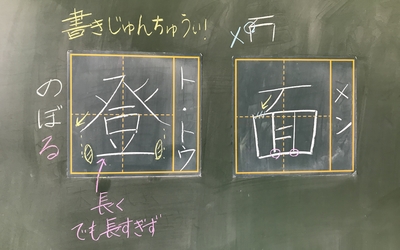 書きじゅんちゅうい!
登
ト・トウ
のぼる
長く
でも長すぎず
面
メン